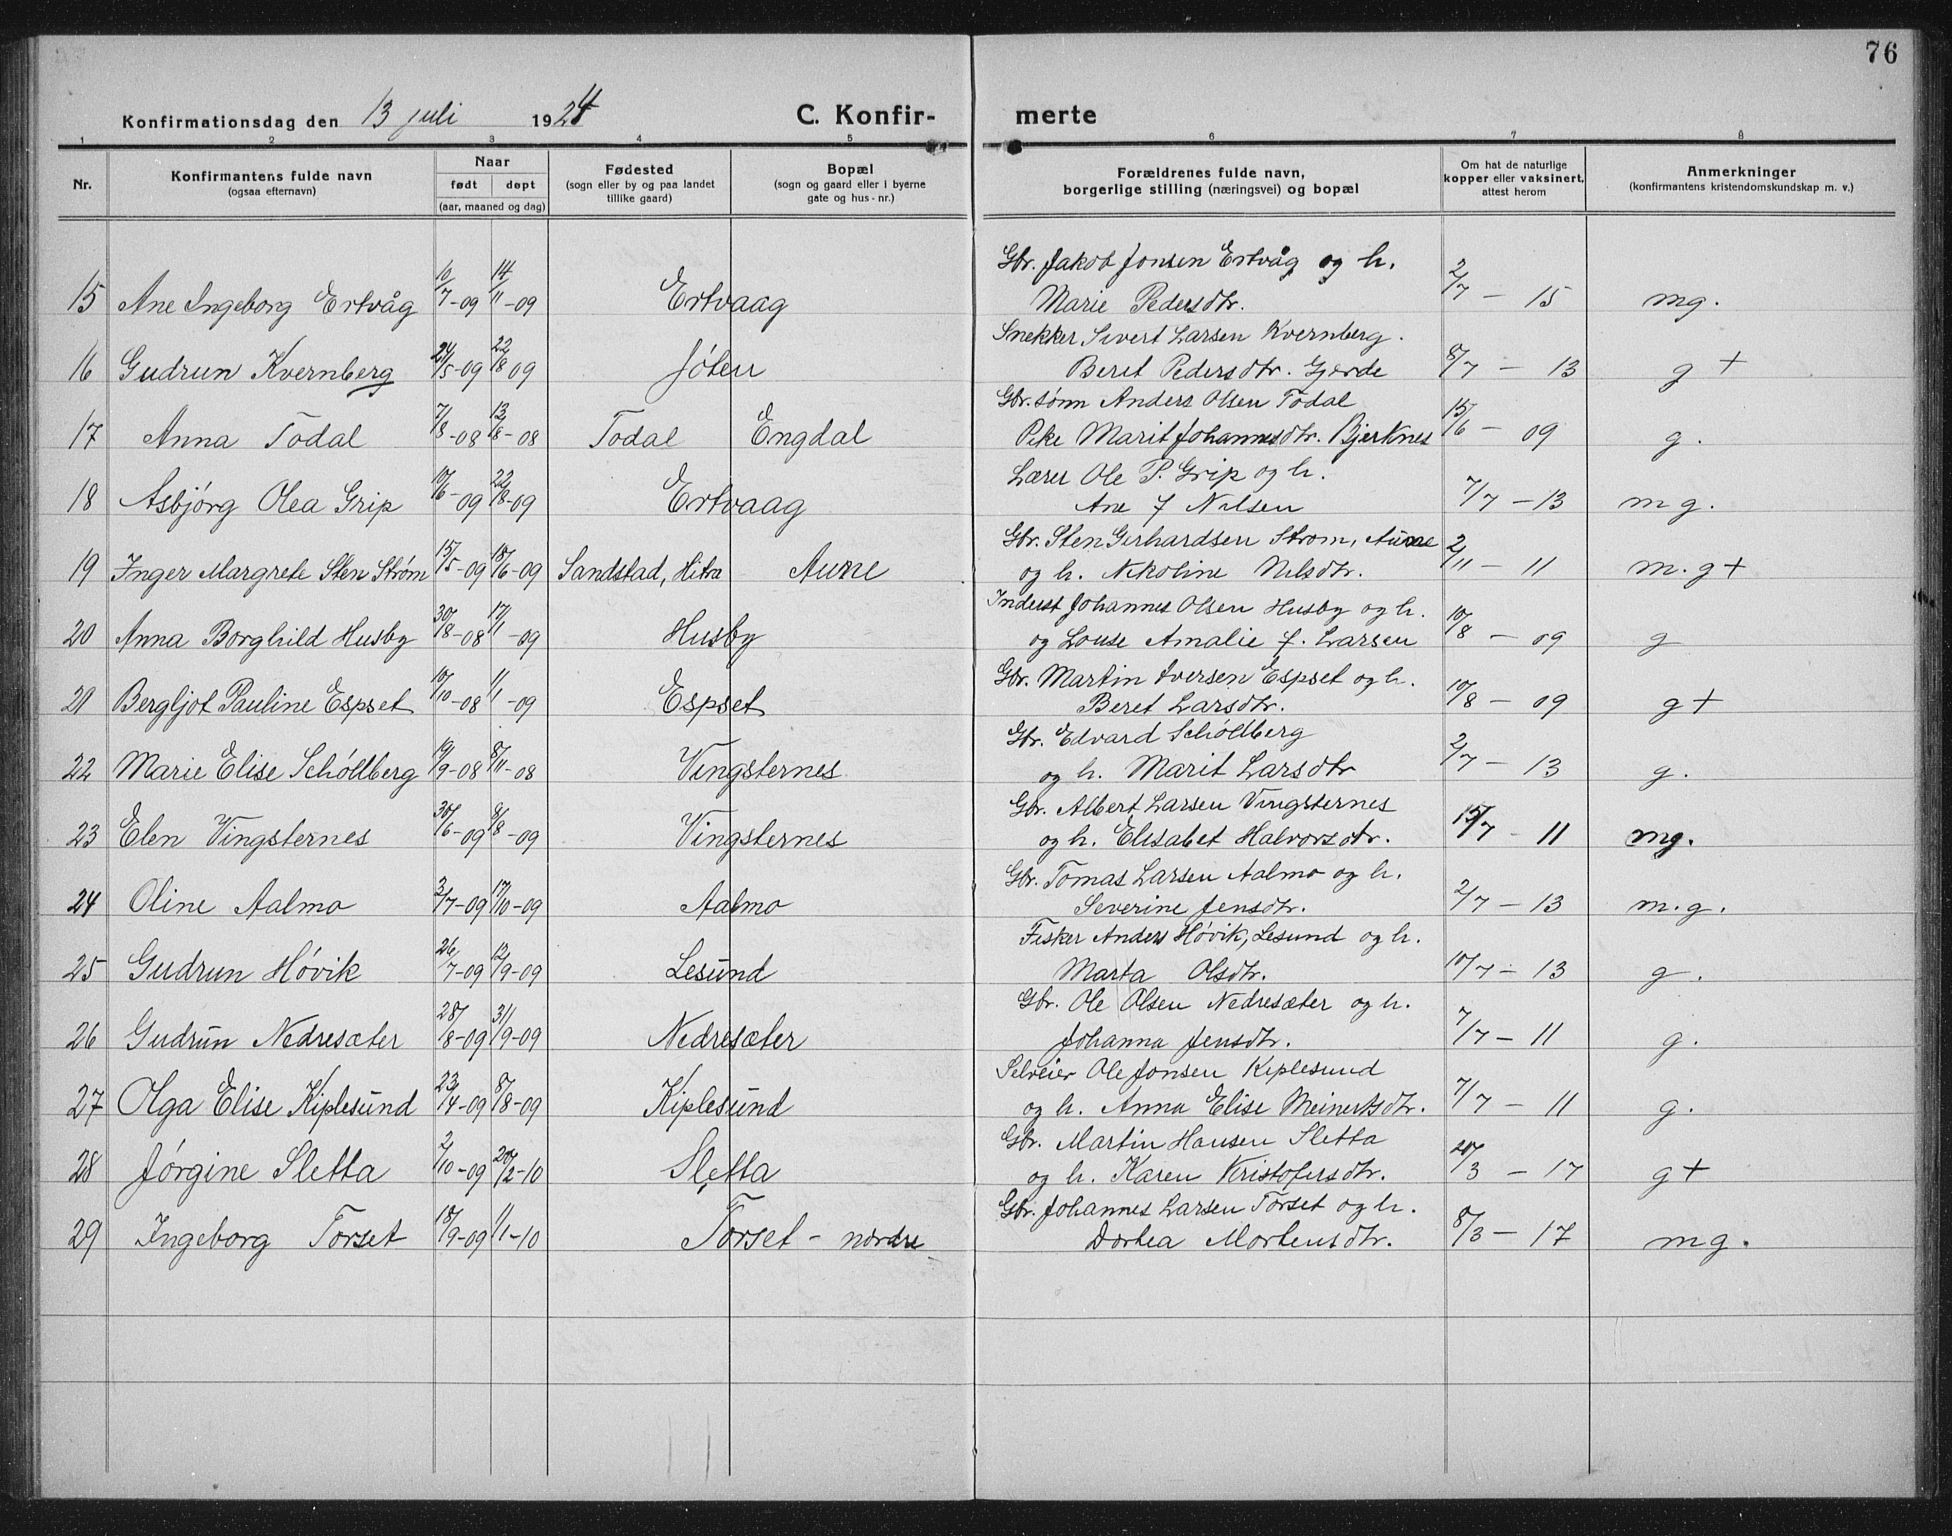 76
Konfirmationsdag den 13 juli 1924 C. Konfir- merte
1 2 3 4 5 6 7 8
Nr. Konfirmantens fulde navn (ogsaa efternavn) Naar født døpt (aar, maaned og dag) Fødested (sogn eller by og paa landet tillike gaard) Bopæl (sogn og gaard eller i byerne gate og hus-nr.) Forældrenes fulde navn, borgerlige stilling (næringsvei) og bopæl Om hat de naturlige kopper eller vaksinert, attest herom Anmerkninger (konfirmantens kristendomskundskap m. v.)
Gbr. Jakob Jonsen Ertvåg og h.
15 Ane Ingeborg Ertvåg 10/7-09 14/11-09 Ertvaag Marie Pedersdtr. 2/7 - 15 mg.
Snekker Sivert Larsen Kvernberg.
16 Gudrun Kvernberg 24/5-09 22/8 09 Jøten Beret Pedersdtr. Gjerde 8/7 - 13 g +
Gbr.sønn Anders Olsen Todal
17 Anna Todal 7/8-08 13/8-08 Todal Engdal Pike Marit Johannesdtr. Bjerknes 15/6 - 09 g.
Lærer Ole P. Grip og h.
18 Asbjørg Olea Grip 10/6-09 22/8-09 Ertvaag Ane f Nilsen 7/7 - 13 mg.
Gbr. Sten Gerhardsen Strøm, Aune
19 Inger Margrete Sten Strøm 15/5-09 18/6-09 Sandstad, Hitra Aune og h. Nikoline Nilsdtr. 2/11 - 11 m.g +
Inderst Johannes Olsen Husby og h.
20 Anna Borghild Husby 30/18-08 17/1-09 Husby og Louse Amalie f. Larsen 10/8 - 09 g
Gbr. Martin Iversen Espset og h.
21 Bergljot Pauline Espset 10/10-08 1/1-09 Espset Beret Larsdtr. 10/8 - 09 g +
Gbr. Edvard Schöldberg
22 Marie Elise Schöldberg 19/9-08 8/11-08 Vingsternes og h. Marit Larsdtr 2/7 - 13 g.
Gbr. Albert Larsen Vingsternes
23 Elen Vingsternes 30/6-09 9/8-09 Vingsternes og h. Elisabet Halvorsdtr. 15/7 - 11 mg.
Gbr. Tomas Larsen Aalmo og h.
24 Oline Aalmo 3/7-09 17/10-09 Aalmo Severine Jensdtr. 2/7 - 13 m.g.
Fisker Anders Høvik, Lesund og h.
25 Gudrun Høvik 26/7-09 12/9-09 Lesund Marta Olsdtr. 10/7 - 13 g.
Gbr. Ole Olsen Nedresæter og h.
26 Gudrun Nedresæter 28/8-09 31/9-09 Nedresæter Johanna Jensdtr. 7/7 - 11 g.
Selveier Ole Jonsen Kiplesund
27 Olga Elise Kiplesund 23/14-09 8/8-09 Kiplesund og h. Anna Elise Meinertsdtr. 7/7 - 11 g.
Gbr. Martin Hansen Sletta
28 Jørgine Sletta 2/10-09 20/2-10 Sletta og h. Karen Kristofersdtr. 20/3 - 17 g +
Gbr. Johannes Larsen Torset og h.
29 Ingeborg Torset 18/9-09 1/1-10 Torset - nordre Dortea Mortensdtr. 8/3 - 17 mg.